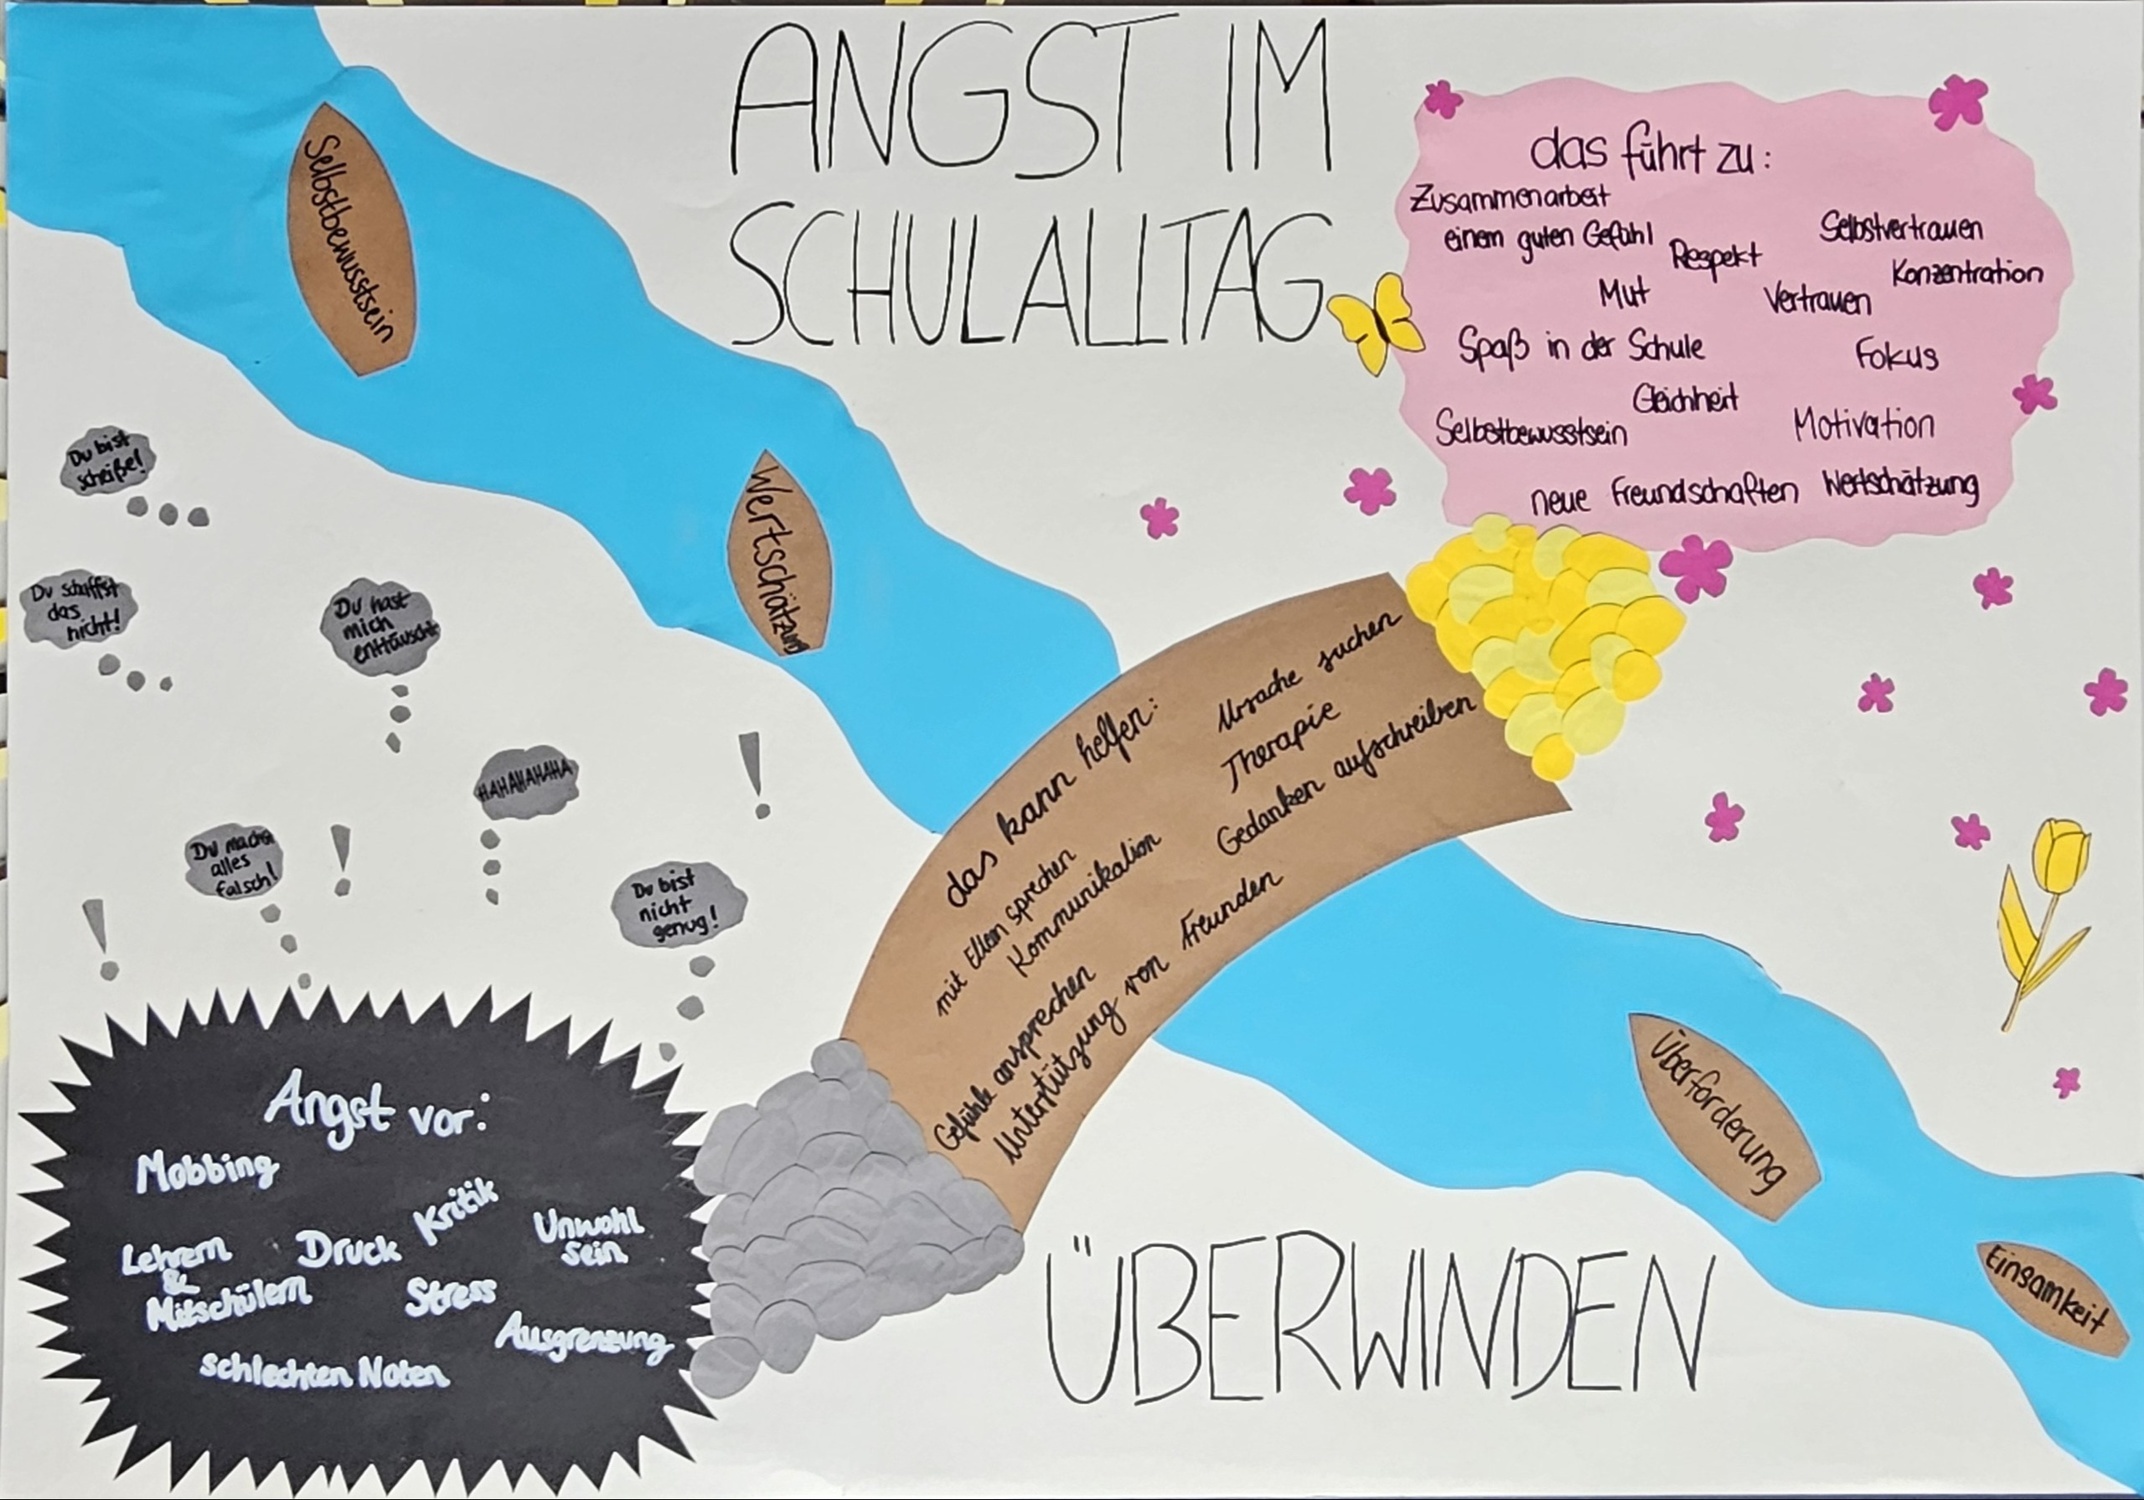 ANGST IM
SCHULALLTAG
ÜBERWINDEN
Selbstbewusstsein
Wertschätzung
das führt zu:
Zusammenarbeit
einem guten Gefühl
Respekt
Selbstvertrauen
Konzentration
Mut
Vertrauen
Spaß in der Schule
Fokus
Gleichheit
Selbstbewusstsein
Motivation
neue Freundschaften
Wertschätzung
Du bist
scheiße!
Du schaffst
das
nicht!
Du hast
mich
enttäuscht
HAHAHAHAHA
Du machst
alles
falsch!
Du bist
nicht
genug!
!
!
!
das kann helfen:
mit Eltern sprechen
Kommunikation
Gefühle ansprechen
Unterstützung von Freunden
Ursache suchen
Therapie
Gedanken aufschreiben
Angst vor:
Mobbing
Kritik
Lehrern
&
Mitschülern
Druck
Unwohl
sein
Stress
Ausgrenzung
schlechten Noten
Überforderung
Einsamkeit